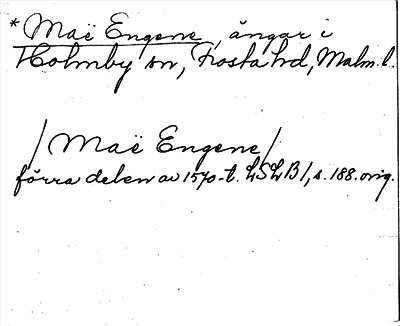 * Maë Engene, ängar i
Holmby sn, Frosta hd, Malm. l.
/Maë Engene/
förra delen av 1570-t. LSLB1, s. 188. orig.